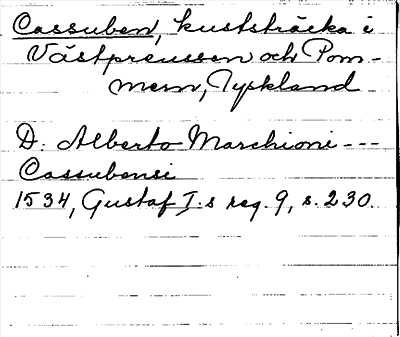 Cassuben, kuststräcka i
Västpreussen och Pom-
mern, Tyskland
D. Alberto Marchioni ---
Cassubensi
1534, Gustaf I.s reg. 9, s. 230.